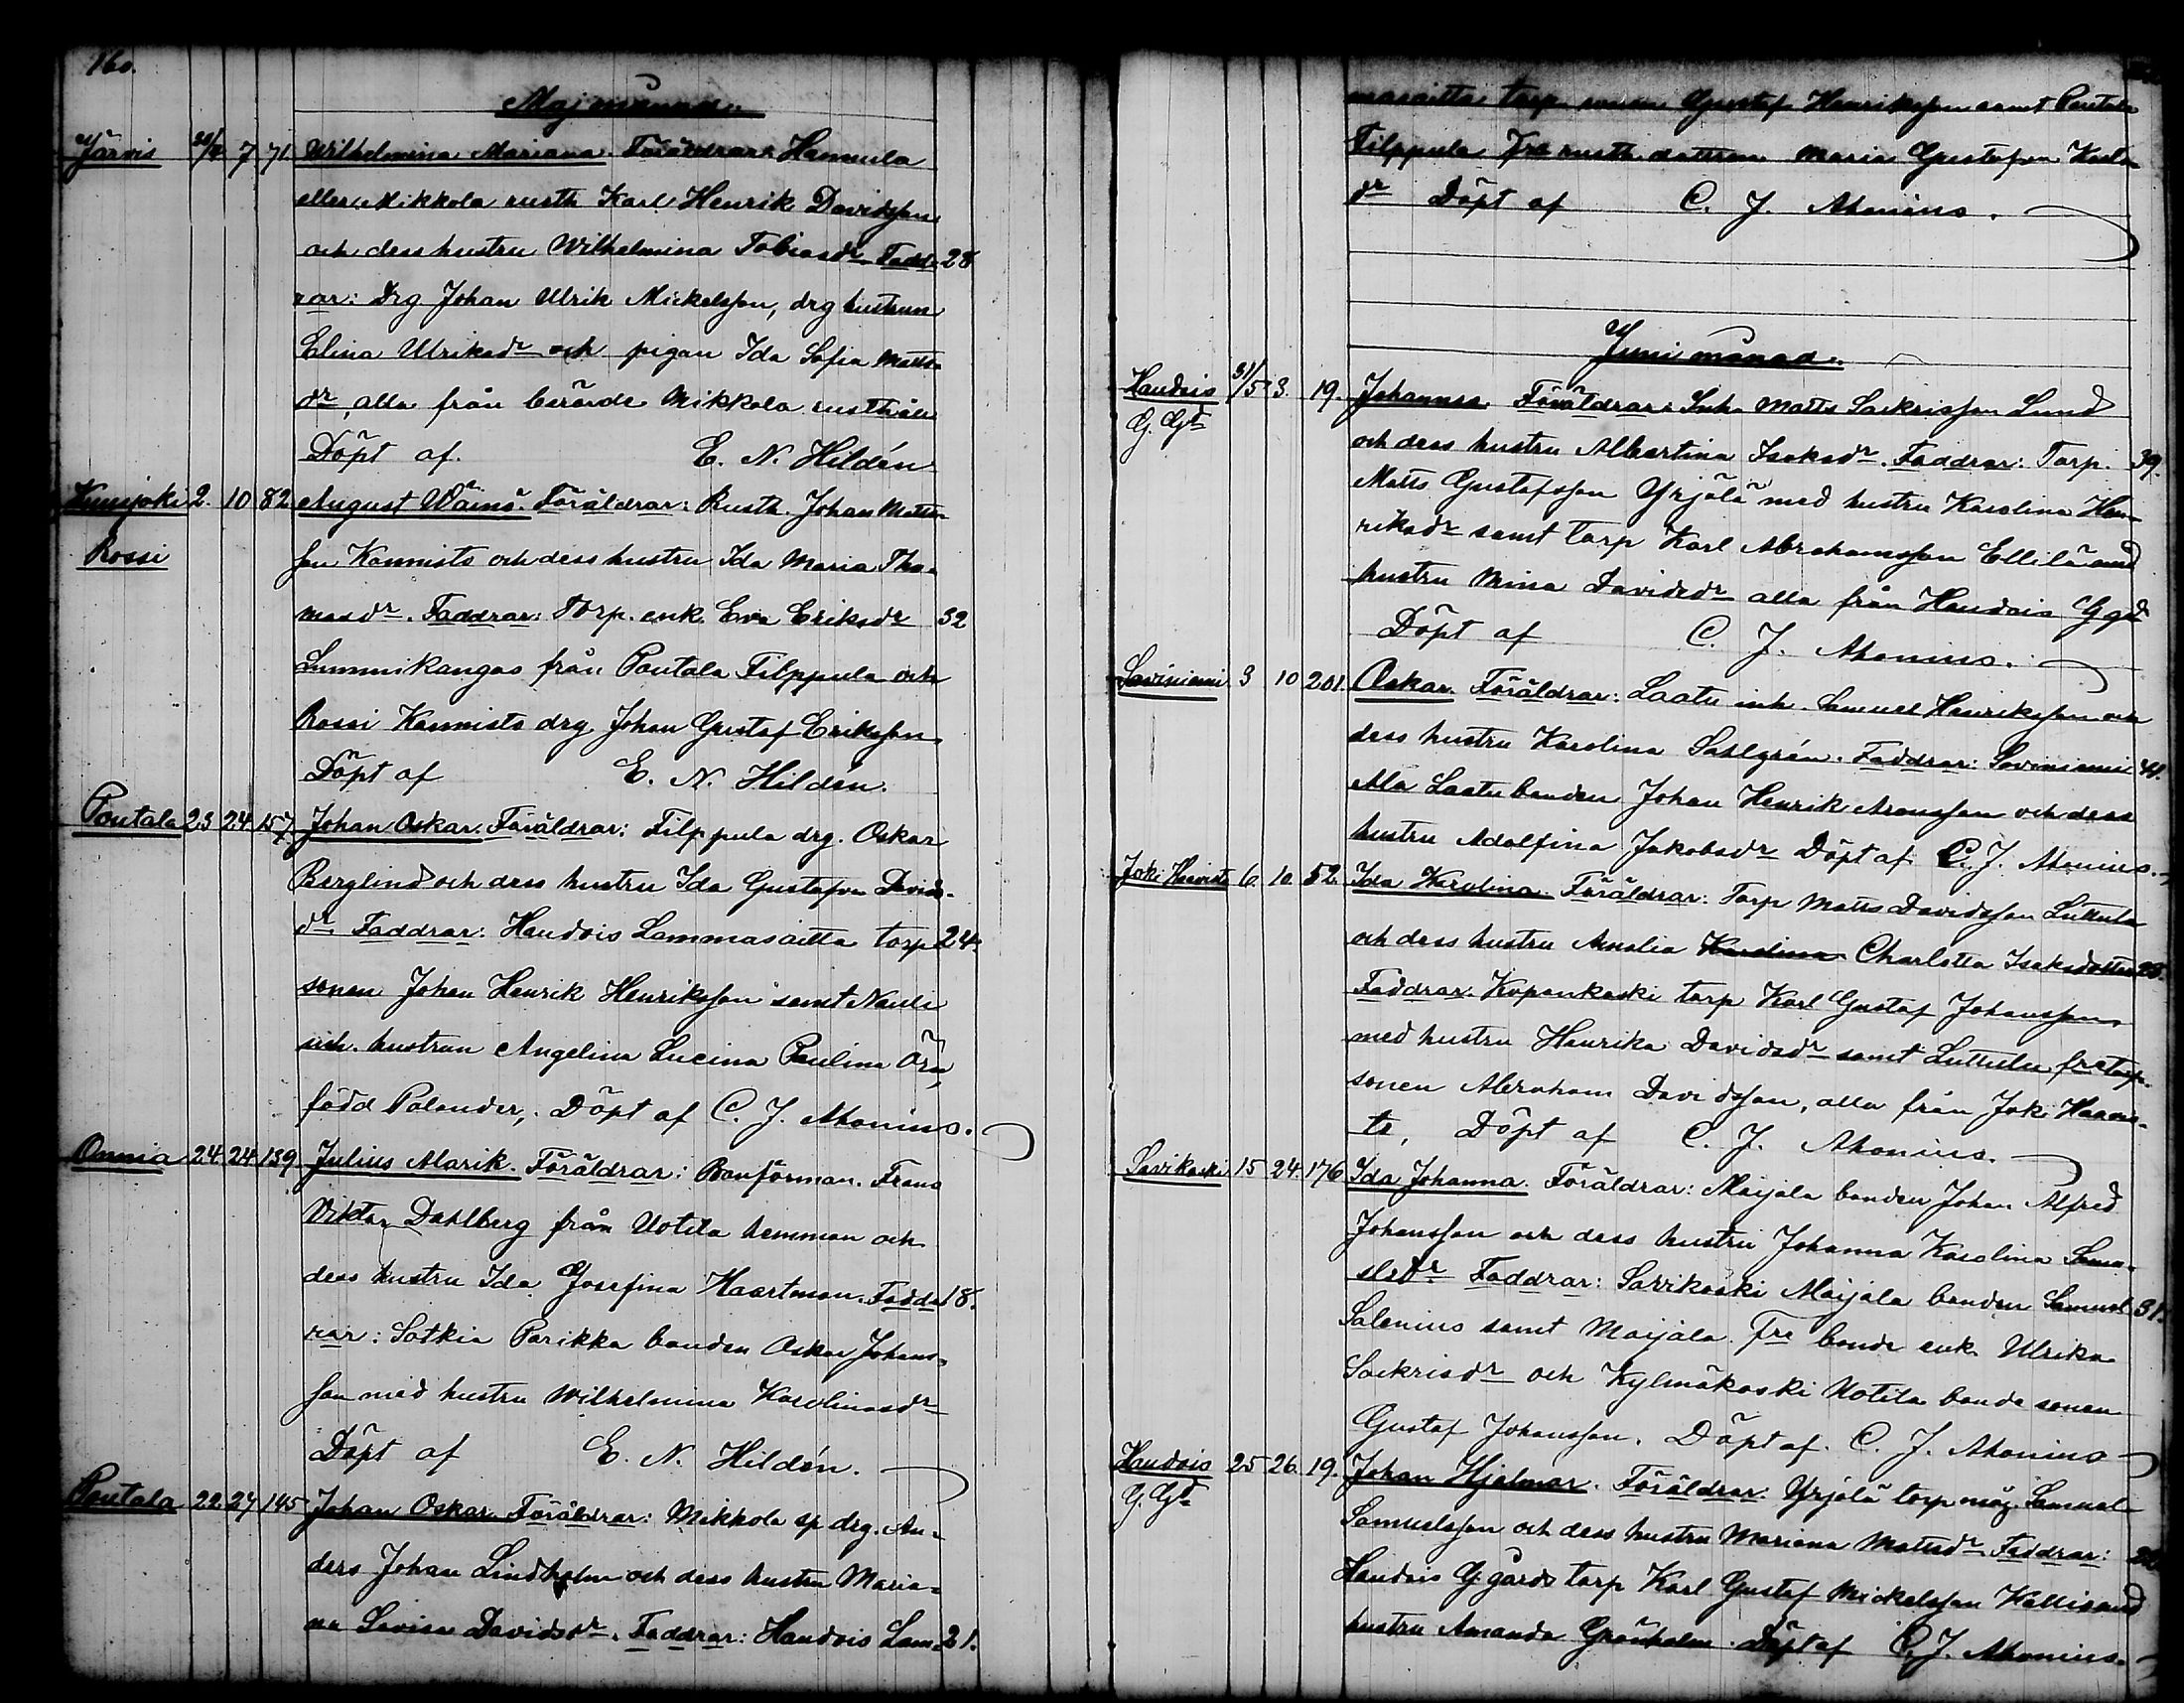 160.
Maj månad.
Järvis 30/4 7 71 Wilhelmina Mariana. Föräldrar: Hannula
eller Mikkola rusth Karl Henrik Davidsson
och dess hustru Wilhelmina Tobiasdr. Fadd- 28
rar: Drg Johan Ulrik Mickelsson, drg hustrun
Elina Ulriksdr och pigan Ida Sofia Matts-
dr, alla från berörde Mikkola rusthåll
Döpt af E. N. Hildén
Kuusjoki 2. 10 82 August Wäinö. Föräldrar: Rusth. Johan Matts-
Rossi
son Kannisto och dess hustru Ida Maria Tho-
masdr. Faddrar: Torp. enk. Eva Eriksdr 32
Lumnikangas från Pontala Filppula och
Rossi Kannisto drg Johan Gustaf Eriksson.
Döpt af E. N. Hildén.
Pontala 23 24 157. Johan Oskar. Föräldrar: Filppula drg. Oskar
Berglind och dess hustru Ida Gustafva Davids-
dr. Faddrar: Haudois Lammasaitta torp 24.
sonen Johan Henrik Henriksson samt Nauli
inh. hustrun Angelina Lucina Paulina Öra,
född Polander,. Döpt af C. J. Ahonius.
Onnia 24. 24 139 Julius Alarik. Föräldrar: Banförman. Frans
Viktor Dahlberg från Uotila hemman och
dess hustru Ida Josefina Haartman. Fadd- 18.
rar: Sotkia Parikka bonden Oskar Johans-
son med hustru Wilhelmina Karolinasdr
Döpt af E. N. Hildén.
Pontala 22. 27 145 Johan Oskar. Föräldrar: Mikkola sp drg. An-
ders Johan Lindholm och dess hustru Maria-
na Lovisa Davidsdr. Faddrar: Haudois Lam- 21.
masaitta torp sonen Gustaf Henriksson samt Pontala
Filppula Fre rusth dottren Maria Gustafva Karls-
dr Döpt af C. J. Ahonius.
Juni månad.
Haudois 31/5 3. 19. Johannes. Föräldrar: Inh. Matts Sackrisson Lund
G. Gd
och dess hustru Albertina Isaksdr. Faddrar: Torp. 39.
Matts Gustafsson Yrjölä med hustru Karolina Hen-
riksdr samt torp Karl Abrahamsson Ellilä med
hustru Mina Davidsdr alla från Haudois G gd
Döpt af C. J. Ahonius.
Saviniemi 3 10 201. Oskar. Föräldrar: Laatu inh. Samuel Henriksson och
dess hustru Karolina Sahlgrén. Faddrar: Saviniemi 41.
Ala Laatu bonden Johan Henrik Aronsson och dess
hustru Adolfina Jakobsdr Döpt af C. J. Ahonius.
Joki Haavisto 6. 10. 52. Ida Karolina. Föräldrar: Torp Matts Davidsson Luttula
och dess hustru Amalia Karolina Charlotta Isaksdotter 25.
Faddrar. Kopankoski torp Karl Gustaf Johansson
med hustru Henrika Davidsdr samt Luttula fre torp-
sonen Abraham Davidsson, alla från Joki Haavis-
to, Döpt af C. J. Ahonius.
Savikoski 15 24. 176 Ida Johanna. Föräldrar: Maijala bonden Johan Alfred
Johansson och dess hustru Johanna Karolina Samu-
elsdr Faddrar: Savikoski Maijala bonden Samuel 31.
Salenius samt Maijala. Fre bonde enk. Ulrika
Sackrisdr och Kylmäkoski Uotila bonde sonen
Gustaf Johansson. Döpt af. C. J. Ahonius
Haudois 25 26. 19. Johan Hjalmar. Föräldrar: Yrjölä torp måg. Samuel
G. Gd
Samuelsson och dess hustru Mariana Mattsdr. Faddrar:
Haudois G. gårds torp Karl Gustaf Mickelsson Kallis med
hustru Amanda Grönholm. Döpt af C. J. Ahonius.